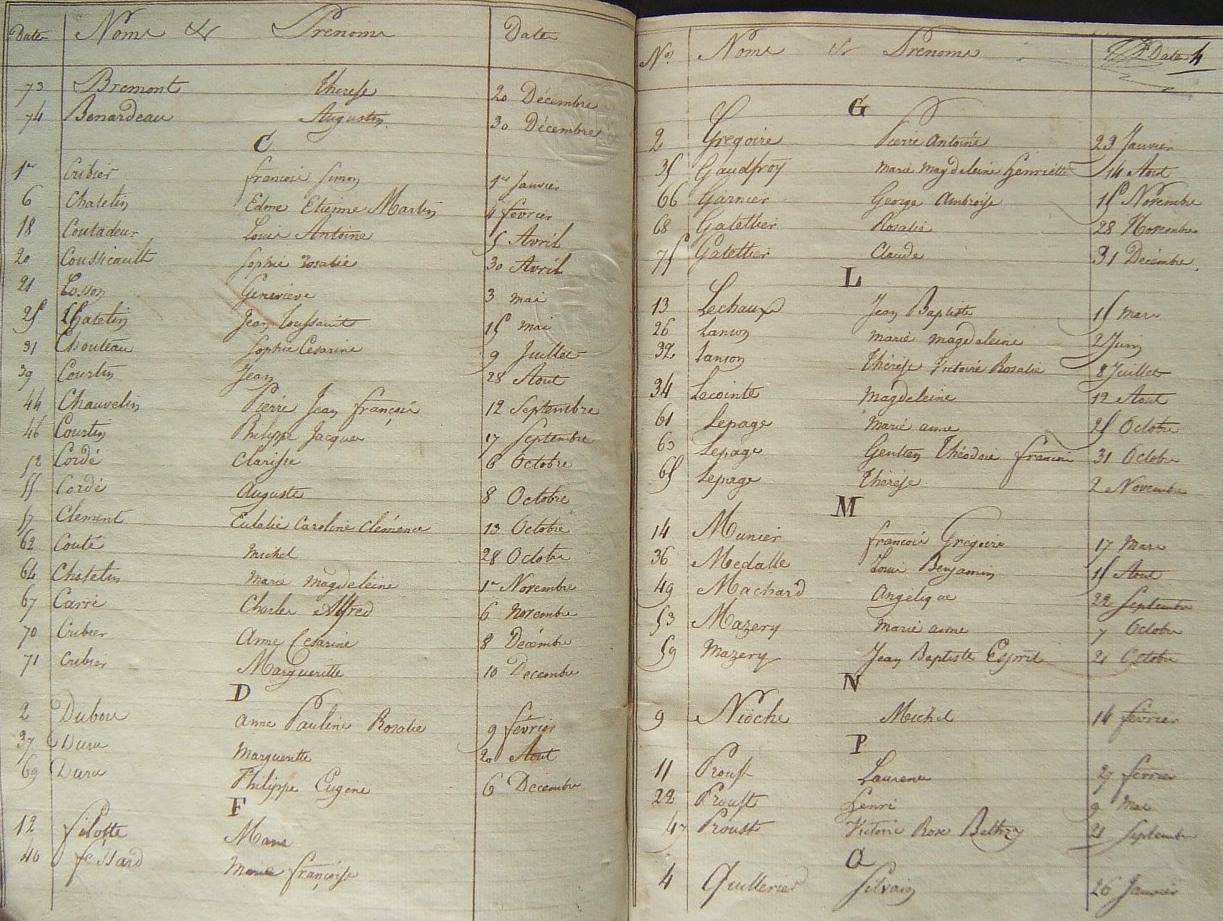 Date Noms & Prénoms Date
73 Bremont Therese 20 Décembre
74 Benardeau Augustin 30 Décembre
C
1er Cribier francois Simon 1er Janvier
6 Chatelin Edme Etienne Martin 4 fevrier
18 Coutadeur Louis Antoine 5 Avril
20 Coussicault Sophie rosalie 30 Avril
21 Cosson Genevieve 3 mai
25 Chatelin Jean Toussaint 15 mai
31 Chouteau Sophie Cesarine 9 Juillet
39 Courtin Jean 28 Aout
44 Chauvelin Pierre Jean françois 12 Septembre
46 Courtin Philippe Jacques 17 Septembre
52 Cordé Clarisse 6 Octobre
55 Cordé Auguste 8 Octobre
57 Clement Eulalie Caroline Clémence 13 Octobre
62 Couté Michel 28 Octobre
64 Chatelin Marie magdeleine 1er Novembre
67 Carré Charles Alfred 6 Novembre
70 Cribier Anne Cesarine 8 Décembre
71 Cribier Margueritte 10 Decembre
D
2 Dubou Anne Pauline Rosalie 9 février
37 Duru Margueritte 20 Aout
69 Duru Philippe Eugene 6 Décembre
F
12 filotte Marie
40 fessard Marie françoise
No. Noms & Prenoms Date 4
G
2 Gregoire Pierre Antoine 23 Janvier
35 Gaudfroy Marie Magdeleine henriette 14 Aout
66 Garnier George Ambroise 15 Novembre
68 Gatellier Rosalie 28 Novembre
75 Gatellier Claude 31 Décembre
L
13 Lechaux Jean Baptiste 15 mars
26 Lanson marie magdeleine 2 Juin
32 Lanson thérèse Victoire Rosalie 8 Juillet
34 Lecointe Magdeleine 12 Aout
61 Lepage Marie anne 25 Octobre
63 Lepage Théodore francois 31 Octobre
65 Lepage thérèse 2 Novembre
M
14 Munier francois Gregoire 17 Mars
36 Medalle Louis Benjamin 15 Aout
49 Machard Angélique 22 Septembre
53 Mazery Marie anne 7 Octobre
59 Mazery Jean Baptiste Esprit 21 Octobre
N
9 Nioche Michel 14 février
P
11 Proust Laurence 27 février
22 Proust henri 9 Mai
47 Proust Victoire Rose 21 Septembre
Q
4 Quillerier Silvain 26 Janvier